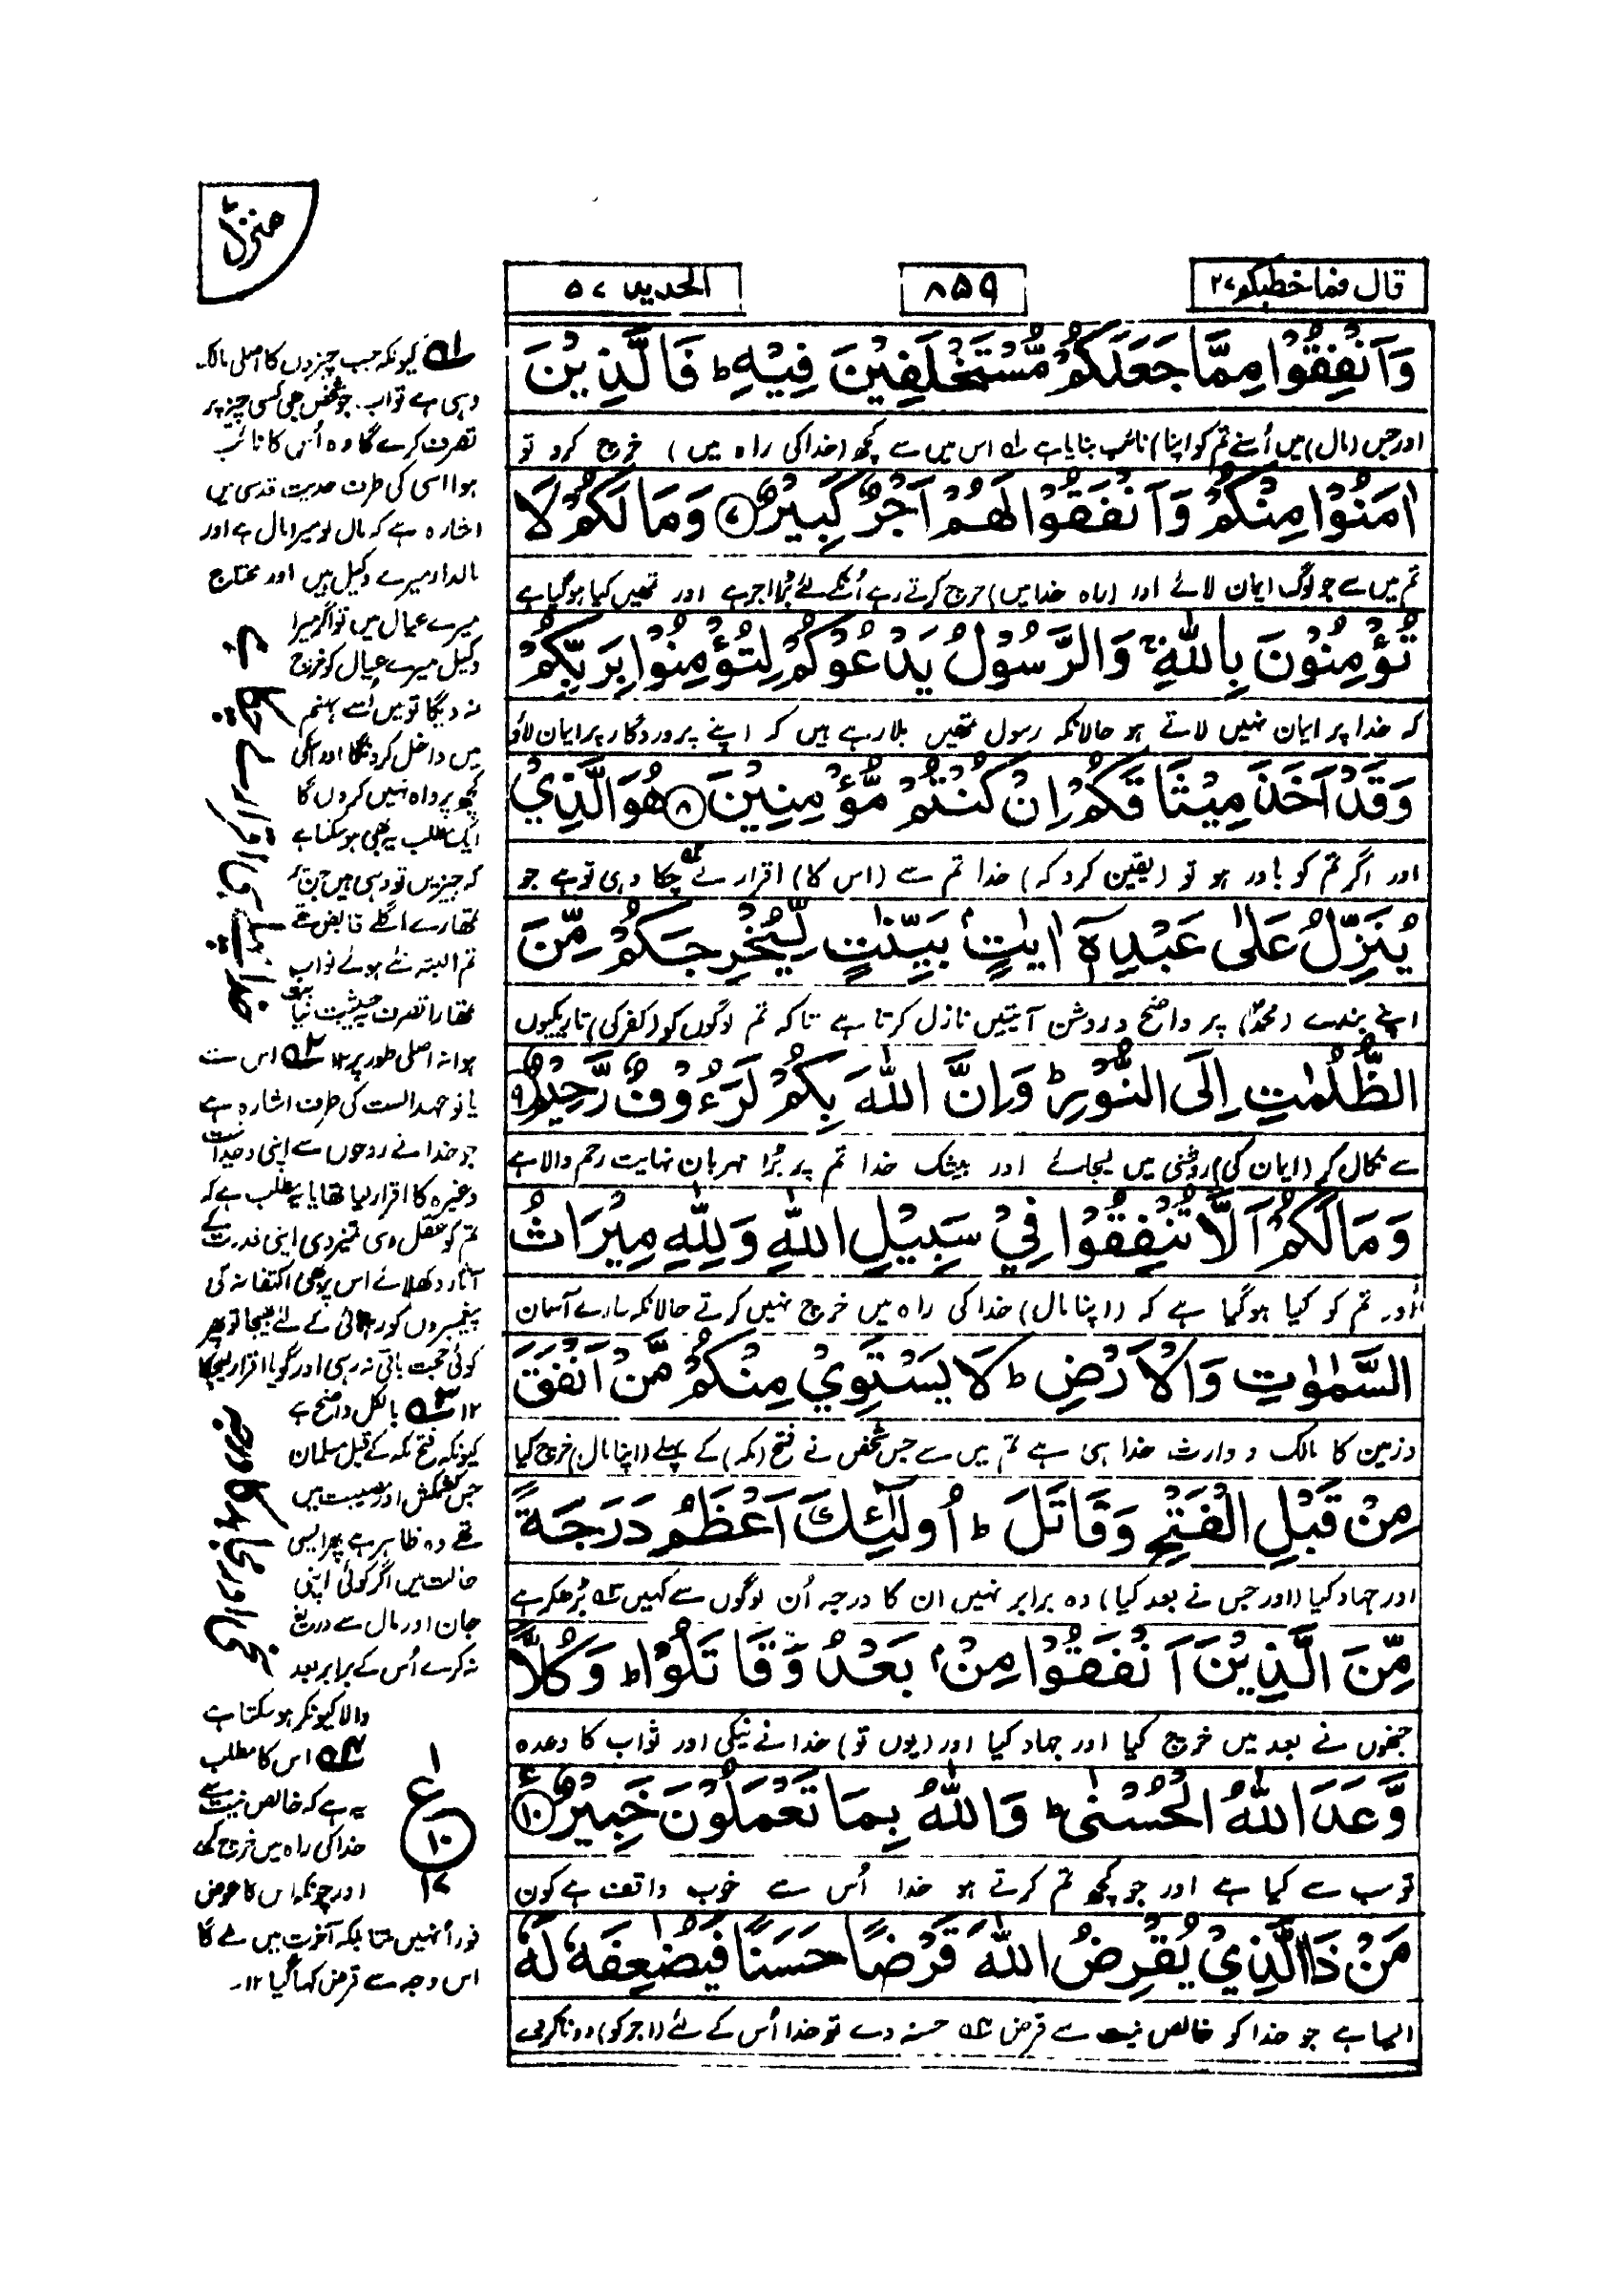 منزل
قال فما خطبكم ٢٧
٨۵٩
الحديد ۵۷
وَاَنْفِقُوْا مِمَّا جَعَلَكُمْ مُّسْتَخْلَفِيْنَ فِيْهِ ؕ فَالَّذِيْنَ
اور جس (مال) میں اُسنے تم کو (اپنا) نائب بنایا ہے ۱؎ اس میں سے کچھ (خدا کی راہ میں) خرچ کرو تو
اٰمَنُوْا مِنْكُمْ وَاَنْفَقُوْا لَهُمْ اَجْرٌ كَبِيْرٌ ﴿۷﴾ وَمَا لَكُمْ لَا
تم میں سے جو لوگ ایمان لائے اور (راہ خدا میں) خرچ کرتے رہے اُنکے لئے بڑا اجر ہے اور تمھیں کیا ہو گیا ہے
تُؤْمِنُوْنَ بِاللّٰهِ ۚ وَالرَّسُوْلُ يَدْعُوْكُمْ لِتُؤْمِنُوْا بِرَبِّكُمْ
کہ خدا پر ایمان نہیں لاتے ہو حالانکہ رسول تمھیں بلا رہے ہیں کہ اپنے پروردگار پر ایمان لاؤ
وَقَدْ اَخَذَ مِيْثَاقَكُمْ اِنْ كُنْتُمْ مُّؤْمِنِيْنَ ﴿۸﴾ هُوَ الَّذِيْ
اور اگر تم کو باور ہو تو (یقین کرو کہ) خدا تم سے (اس کا) اقرار لے ۲؎ چکا وہی تو ہے جو
يُنَزِّلُ عَلٰى عَبْدِهٖۤ اٰيٰتٍۭ بَيِّنٰتٍ لِّيُخْرِجَكُمْ مِّنَ
اپنے بندے (محمدؐ) پر واضح و روشن آیتیں نازل کرتا ہے تاکہ تم لوگوں کو (کفر کی) تاریکیوں
الظُّلُمٰتِ اِلَى النُّوْرِ ؕ وَاِنَّ اللّٰهَ بِكُمْ لَرَءُوْفٌ رَّحِيْمٌ ﴿۹﴾
سے نکال کر (ایمان کی) روشنی میں لیجائے اور بیشک خدا تم پر بڑا مہربان نہایت رحم والا ہے
وَمَا لَكُمْ اَلَّا تُنْفِقُوْا فِيْ سَبِيْلِ اللّٰهِ وَلِلّٰهِ مِيْرَاثُ
اور تم کو کیا ہو گیا ہے کہ (اپنا مال) خدا کی راہ میں خرچ نہیں کرتے حالانکہ سارے آسمان
السَّمٰوٰتِ وَالْاَرْضِ ؕ لَا يَسْتَوِيْ مِنْكُمْ مَّنْ اَنْفَقَ
و زمین کا مالک و وارث خدا ہی ہے تم میں سے جس شخص نے فتح (مکہ) کے پہلے (اپنا مال) خرچ کیا
مِنْ قَبْلِ الْفَتْحِ وَقَاتَلَ ؕ اُولٰٓئِكَ اَعْظَمُ دَرَجَةً
اور جہاد کیا (اور جس نے بعد کیا) وہ برابر نہیں ان کا درجہ اُن لوگوں سے کہیں ۳؎ بڑھکر ہے
مِّنَ الَّذِيْنَ اَنْفَقُوْا مِنْۢ بَعْدُ وَقَاتَلُوْا ؕ وَكُلًّا
جنھوں نے بعد میں خرچ کیا اور جہاد کیا اور (یوں تو) خدا نے نیکی اور ثواب کا وعدہ
وَّعَدَ اللّٰهُ الْحُسْنٰى ؕ وَاللّٰهُ بِمَا تَعْمَلُوْنَ خَبِيْرٌ ﴿۱۰﴾
تو سب سے کیا ہے اور جو کچھ تم کرتے ہو خدا اُس سے خوب واقف ہے کون
مَنْ ذَا الَّذِيْ يُقْرِضُ اللّٰهَ قَرْضًا حَسَنًا فَيُضٰعِفَهٗ لَهٗ
ایسا ہے جو خدا کو خالص نیت سے قرض ۴؎ حسنہ دے تو خدا اُس کے لئے (اجر کو) دونا کر دے
۱؎ کیونکہ سب چیزوں کا اصلی مالک
وہی ہے تو اب جو شخص بھی کسی چیز پر
تصرف کرے گا وہ اُس کا نائب
ہوا اسی کی طرف حدیث قدسی میں
اشارہ ہے کہ مال تو میرا مال ہے اور
مالدار میرے وکیل ہیں اور محتاج
میرے عیال میں تو اگر میرا
وکیل میرے عیال کو خرچ
نہ دیگا تو میں اُسے جہنم
میں داخل کرونگا اور اسکی
کچھ پرواہ نہیں کروں گا
ایک مطلب یہ بھی ہو سکتا ہے
کہ چیزیں تو وہی ہیں جن پر
تمھارے اگلے قابض تھے
تم البتہ نئے ہوئے تو اب
تمھارا تصرف بحیثیت نیابت
ہوا نہ اصلی طور پر ۱۲ ۲؎ اس سے
یا تو عہد الست کی طرف اشارہ ہے
جو خدا نے روحوں سے اپنی وحدانیت
وغیرہ کا اقرار لیا تھا یا یہ مطلب ہے کہ
تم کو عقل دی تمیز دی اپنی قدرت کے
آثار دکھلائے اس پر بھی اکتفا نہ کی
پیغمبروں کو رہنمائی کے لئے بھیجا تو پھر
کوئی حجت باقی نہ رہی اور گویا اقرار لیچکا
۱۲ ۳؎ بالکل واضح ہے
کیونکہ فتح مکہ کے قبل مسلمان
جس کشمکش اور مصیبت میں
تھے وہ ظاہر ہے پھر ایسی
حالت میں اگر کوئی اپنی
جان اور مال سے دریغ
نہ کرے اُس کے برابر بعد
والا کیونکر ہو سکتا ہے
۴؎ اس کا مطلب
یہ ہے کہ خالص نیت سے
خدا کی راہ میں خرچ کرے
اور چونکہ اس کا عوض
فوراً نہیں ملتا بلکہ آخرت میں ملے گا
اس وجہ سے قرض کہا گیا ۱۲۔
سخی اور مجاہد کا درجہ
۱
ع
۱۰
۱۷